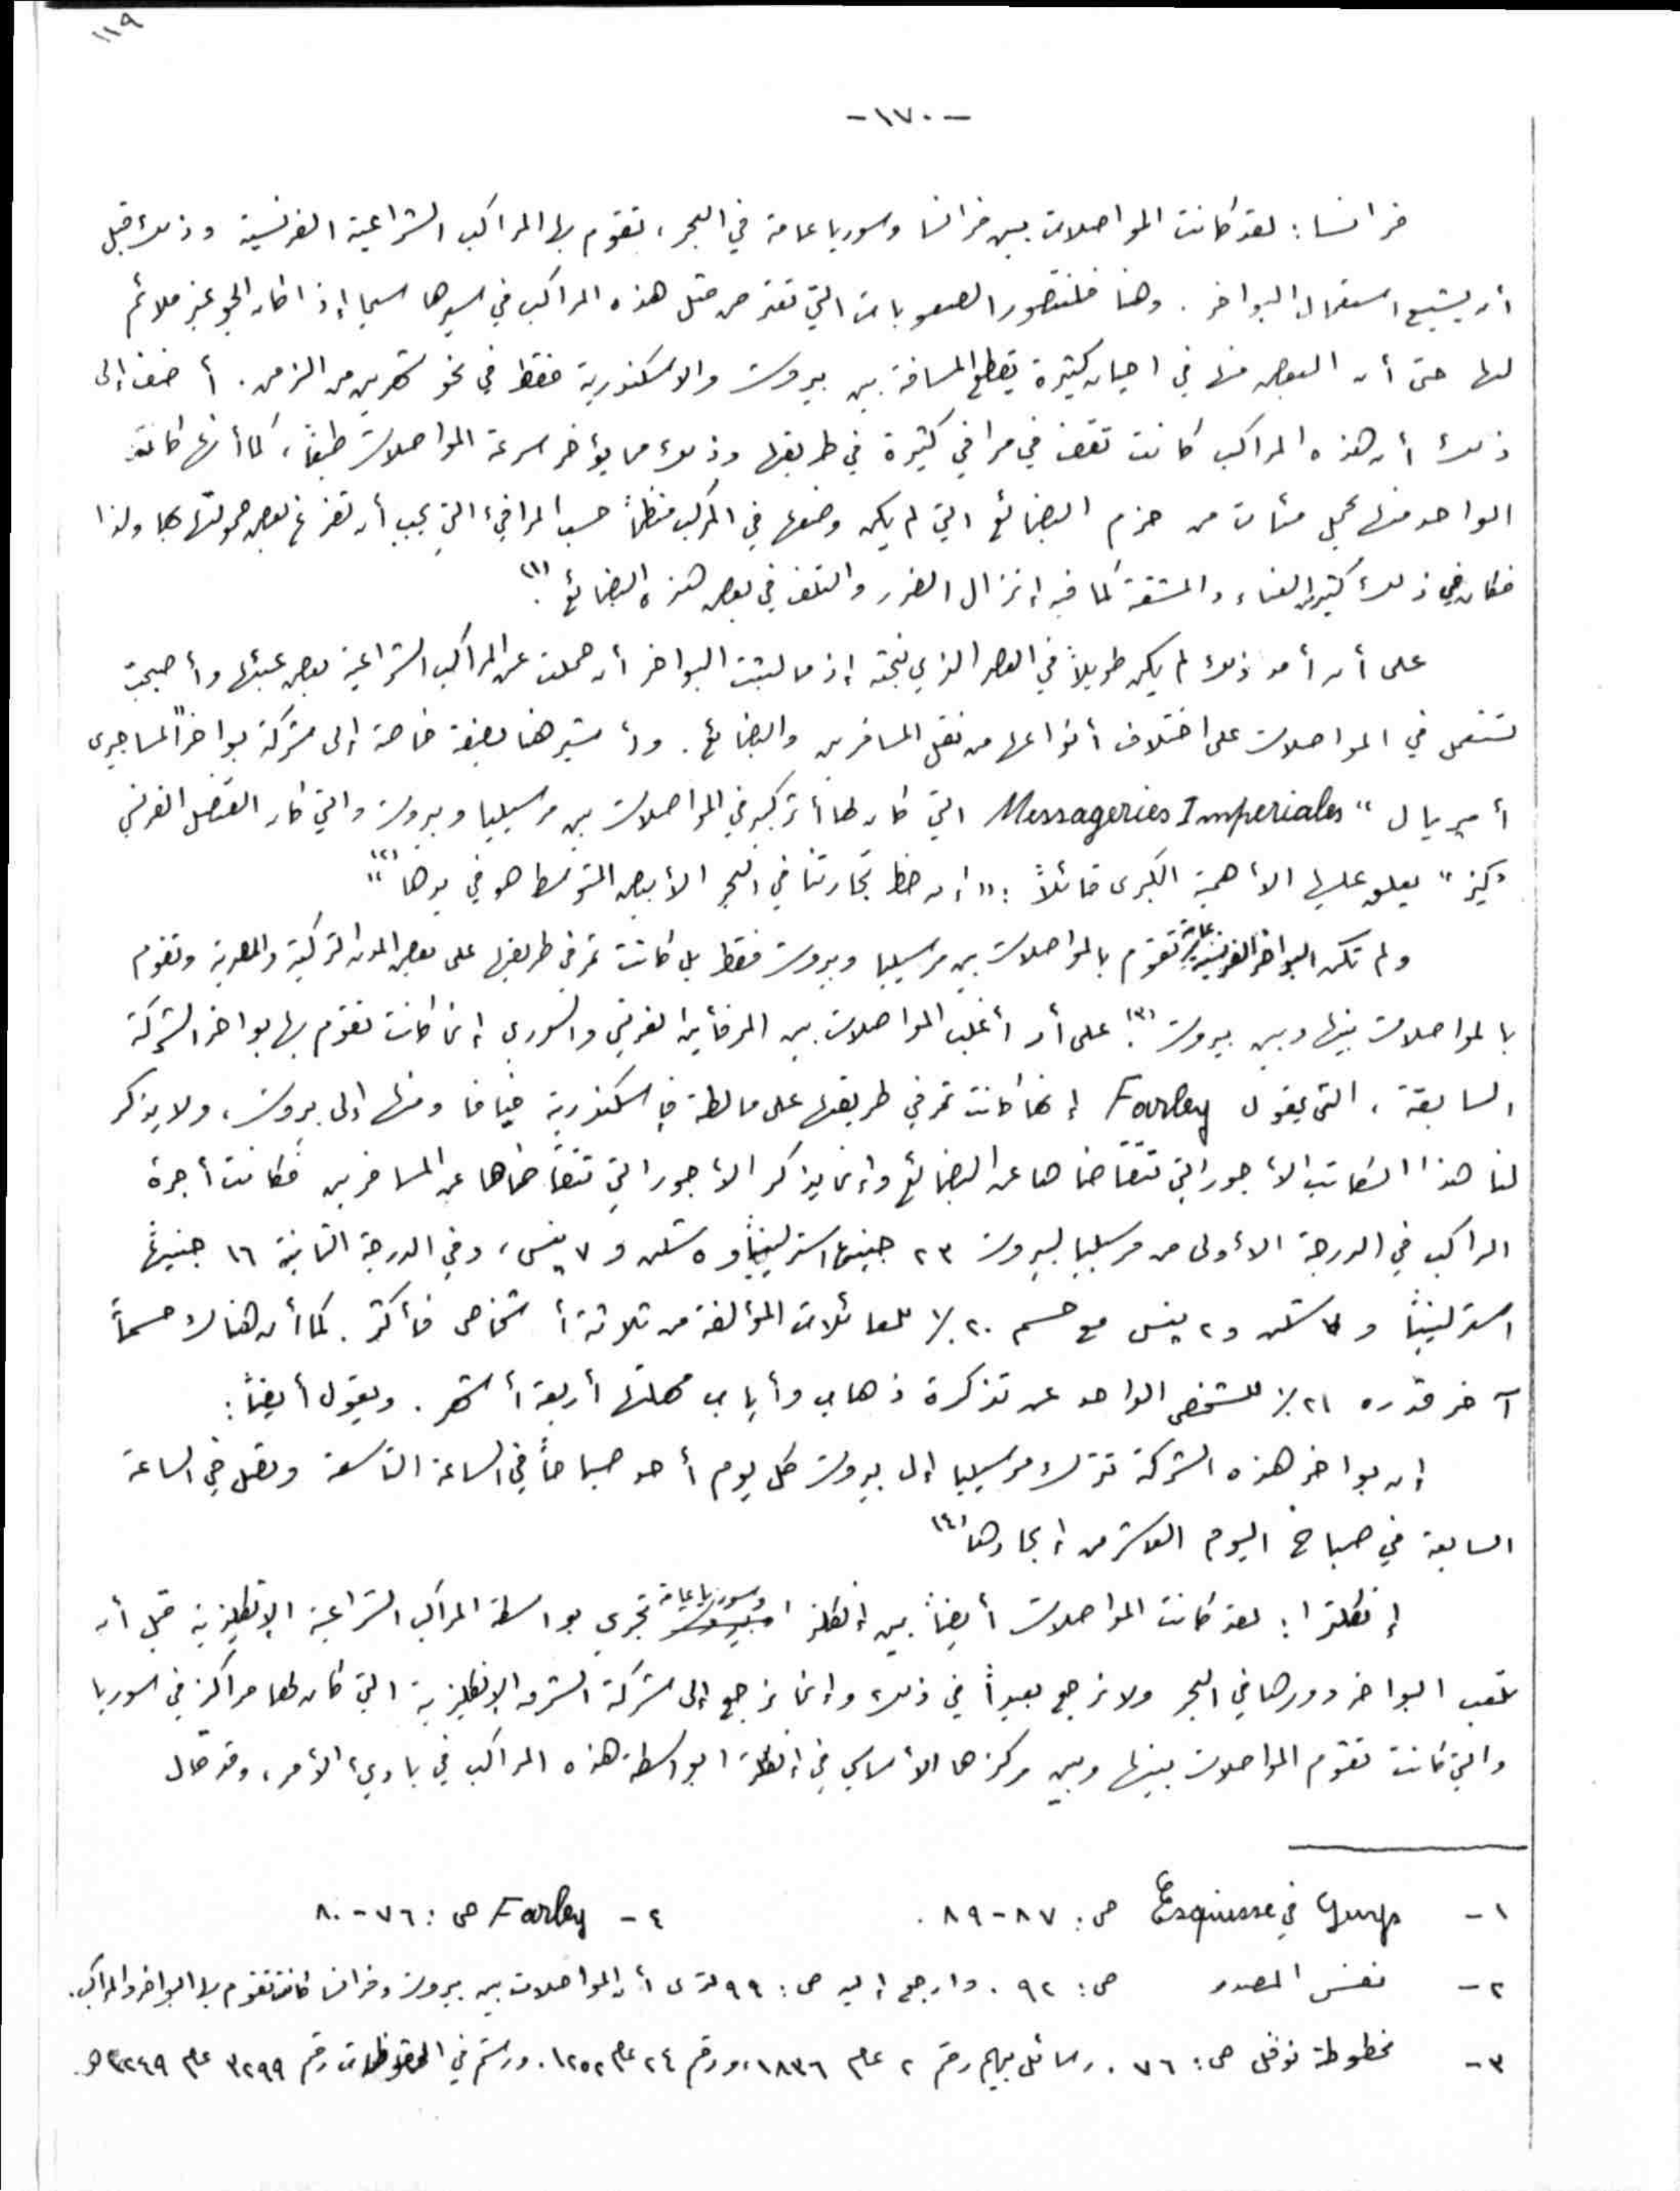 ١١٩
-١٧٠-
فرانسا: لقد كانت المواصلات بين فرانسا وسوريا عامة في البحر، تقوم بها المراكب الشراعية الفرنسية وذلك قبل
أن يشيع استعمال البواخر. وهنا فلنتصور الصعوبات التي تعترض مثل هذه المراكب في سيرها سيما إذا كان الجو غير ملائم
لها حتى أن البعض منها في احيان كثيرة يقطع المسافة بين بيروت والاسكندرية فقط في نحو شهرين من الزمن. أضف إلى
ذلك أن هذه المراكب كانت تقف في مرافئ كثيرة في طريقها وذلك مما يؤخر سرعة المواصلات طبعاً، كما أنها كانت
الواحد منها تحمل مئات من حزم البضائع التي لم يكن وضعها في المركب منظماً حسب المرافئ التي يجب أن تفرغ بعض حمولتها بها ولذا
فكان في ذلك كثير من العناء والمشقة كما فيه إنزال الضرر والتلف في بعض هذه البضائع (١).
على أن أمد ذلك لم يكن طويلاً في العصر الذي نبحثه إذ ما لبثت البواخر أن حملت عن المراكب الشراعية بعض عبئها وأصبحت
تستعمل في المواصلات على اختلاف أنواعها من نقل المسافرين والبضائع. ولأشير هنا بصفة خاصة إلى شركة بواخر "المساجيري
أمبريال" Messageries Imperiales التي كان لها أثر كبير في المواصلات بين مرسيليا وبيروت والتي كان القنصل الفرنسي
"كيز" يعلق عليها الأهمية الكبرى قائلاً: "إن حظ تجارتنا في البحر الأبيض المتوسط هو في يدها" (٢)
ولم تكن البواخر الفرنسية عامة تقوم بالمواصلات بين مرسيليا وبيروت فقط بل كانت تمر في طريقها على بعض المدن التركية والمصرية وتقوم
بالمواصلات بينها وبين بيروت (٣). على أن أغلب المواصلات بين المرفأين الفرنسي والسوري إنما كانت تقوم بها بواخر الشركة
السابقة، التي يقول Farley إنها كانت تمر في طريقها على مالطة فاسكندرية فيافا ومنها إلى بيروت، ولا يذكر
لنا هذا الكاتب الأجور التي تتقاضاها عن البضائع وإنما يذكر الأجور التي تتقاضاها عن المسافرين فكانت أجرة
الراكب في الدرجة الأولى من مرسيليا لبيروت ٢٣ جنيهاً استرلينياً و٥ شلن و٧ پنس، وفي الدرجة الثانية ١٦ جنيهاً
استرلينياً و شلن و٢ پنس مع حسم ٢٠٪ للعائلات المؤلفة من ثلاثة أشخاص فأكثر. كما أن هناك حسماً
آخر قدره ٢١٪ للشخص الواحد عن تذكرة ذهاب وأياب مهلتها أربعة أشهر. ويقول أيضاً:
إن بواخر هذه الشركة تترك مرسيليا إلى بيروت كل يوم أحد صباحاً في الساعة التاسعة وتصل في الساعة
السابعة في صباح اليوم العاشر من إبحارها (٤)
إنكلترا: لقد كانت المواصلات أيضاً بين إنكلترا وسوريا عامة تجري بواسطة المراكب الشراعية الإنكليزية قبل أن
تلعب البواخر دورها في البحر ولا نرجع بعيداً في ذلك وإنما نرجع إلى شركة الشرق الإنكليزية التي كان لها مراكز في سوريا
والتي كانت تقوم المواصلات بينها وبين مركزها الأساسي في إنكلترا بواسطة هذه المراكب في بادئ الأمر، وقد قال
١- Guys في Esquisse ص: ٨٧-٨٩.
٤- Farley ص: ٧٦-٨٠
٢- نفس المصدر ص: ٩٢. وارجع إليه ص: ٩٩ لترى أن المواصلات بين بيروت وفرانسا كانت تقوم بها البواخر والمراكب.
٣- مخطوطة نوفل ص: ٧٦. رسائل بيهم رقم ٢ عام ١٨٣٦، ورقم ٢٤ عام ١٢٥٢. ورستم في المحفوظات رقم ٣٢٩٩ عام ١٢٤٩ هـ.